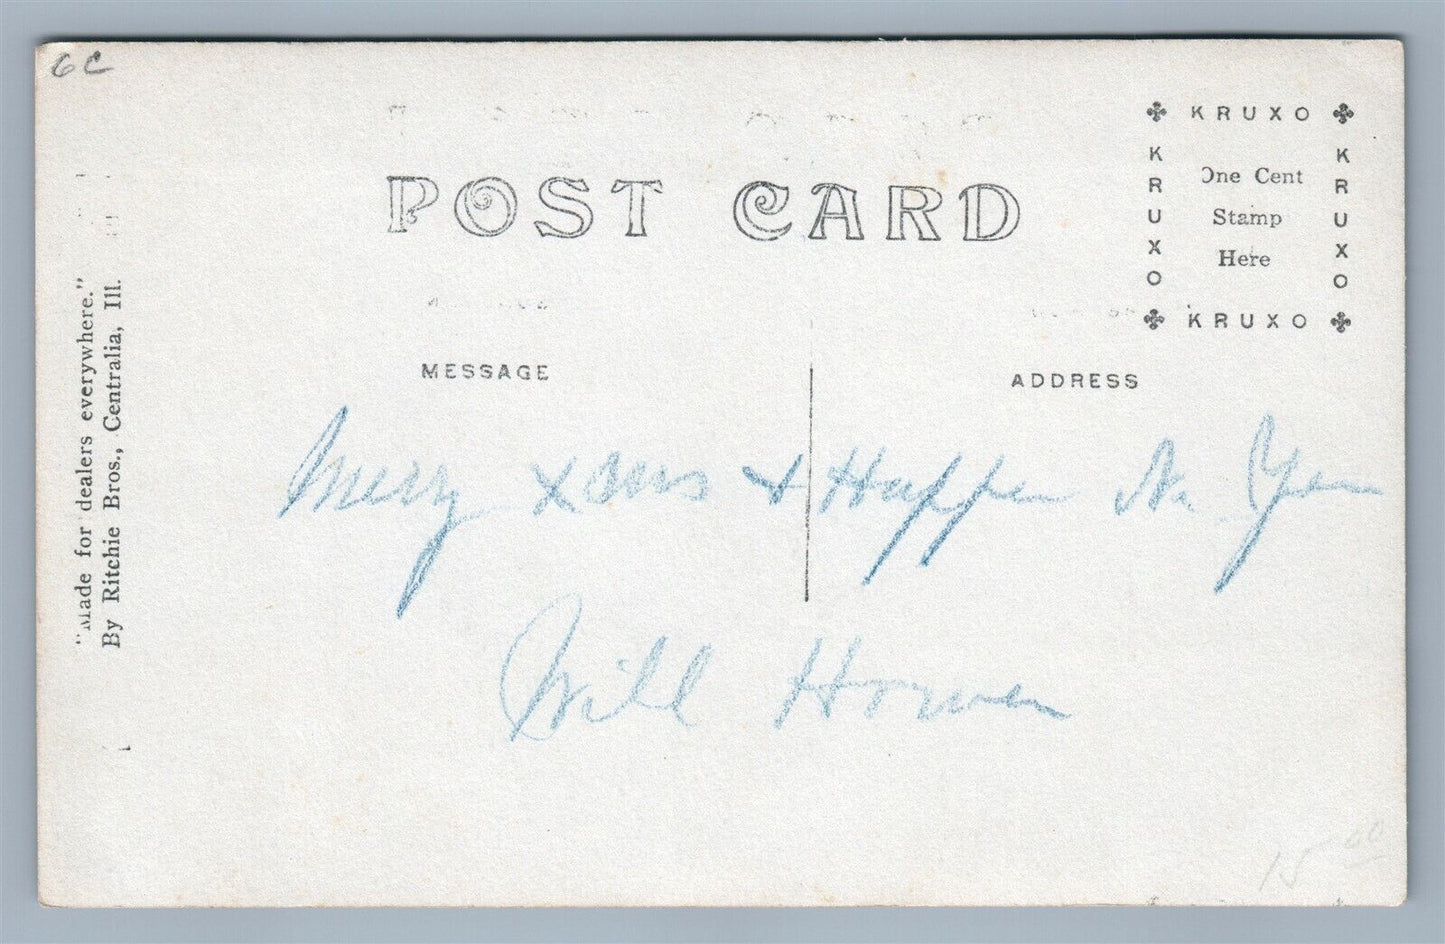 6c
POST CARD
KRUXO
KRUXO
One Cent
Stamp
Here
KRUXO
KRUXO
MESSAGE
ADDRESS
"Made for dealers everywhere."
By Ritchie Bros., Centralia, Ill.
Merry xmas + Happy N. Year
Will
15 00